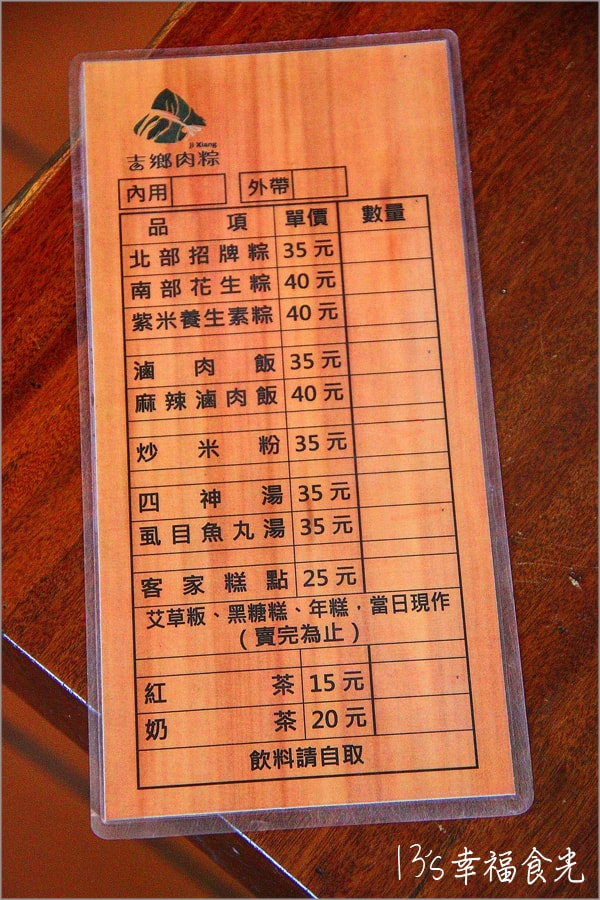 ji Xiang
吉鄉肉粽
內用 外帶
品項 單價 數量
北部招牌粽 35元
南部花生粽 40元
紫米養生素粽 40元
滷肉飯 35元
麻辣滷肉飯 40元
炒米粉 35元
四神湯 35元
虱目魚丸湯 35元
客家糕點 25元
艾草粄、黑糖糕、年糕，當日現作
（賣完為止）
紅茶 15元
奶茶 20元
飲料請自取
13's幸福食光